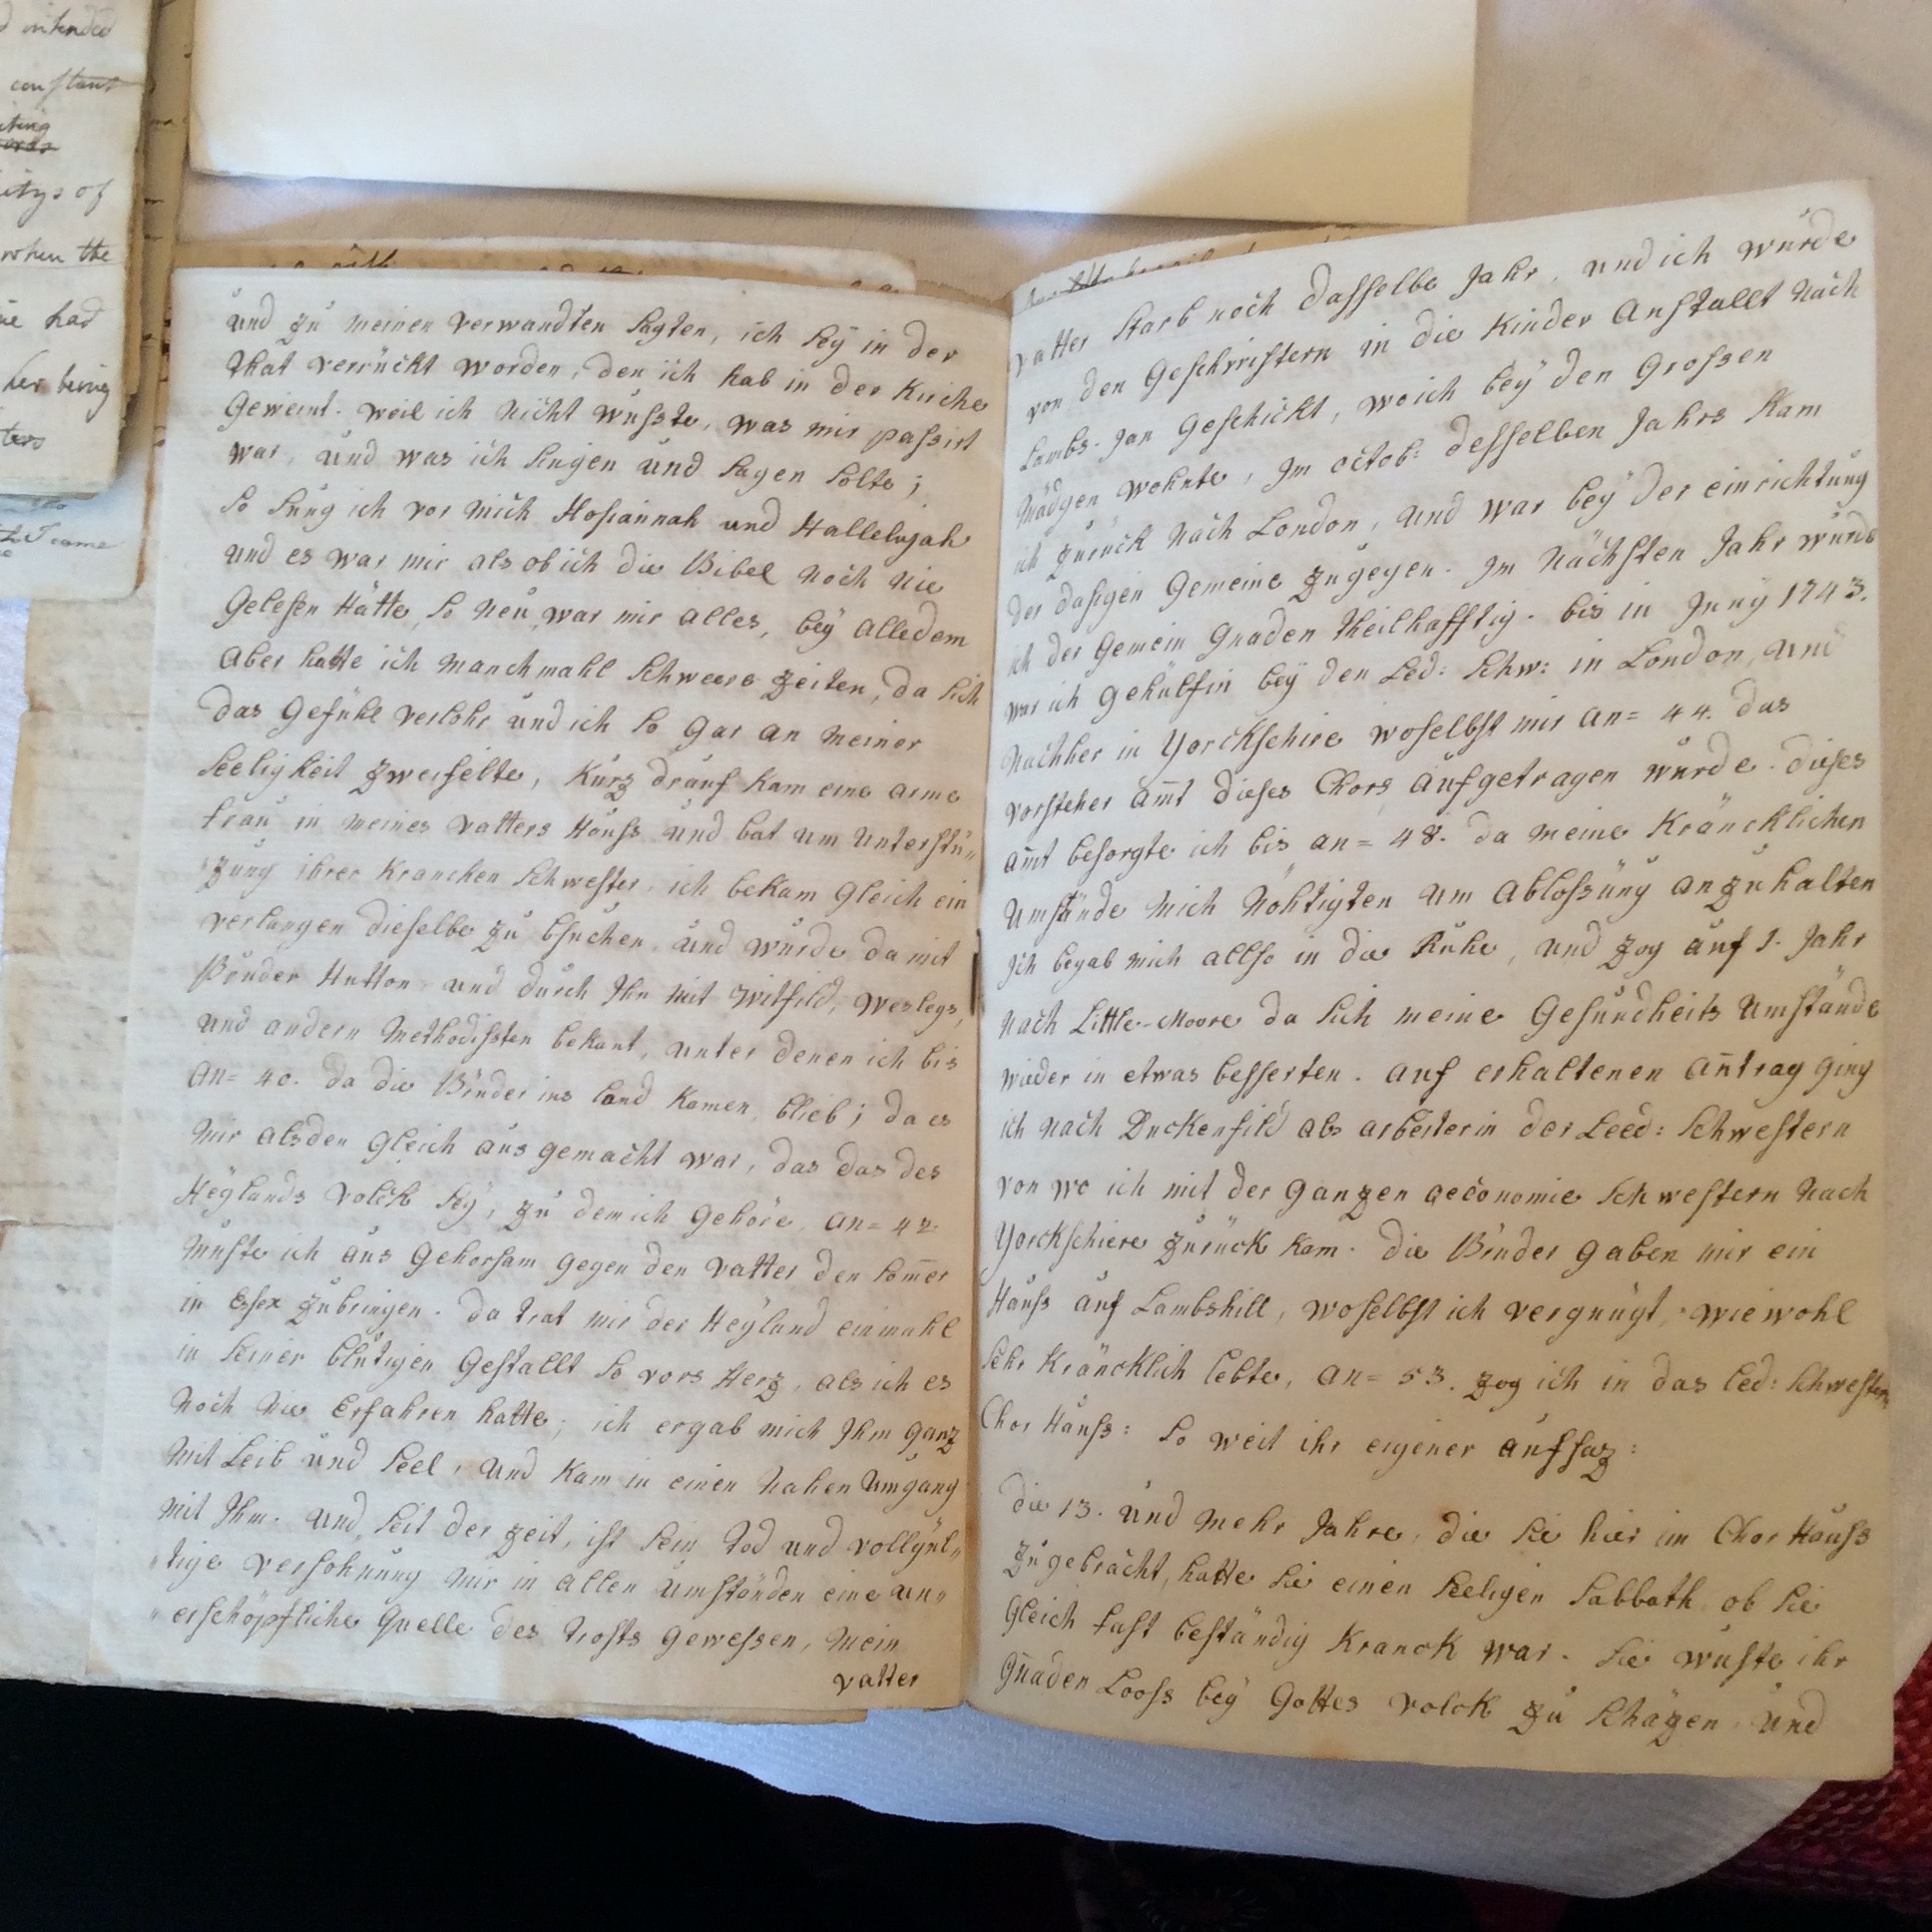 intended
constant
itys of
when the
had
her being
I came
und zu meinen verwandten sagten, ich seÿ in der
that verrückt worden, den ich hab in der Kirche
Geweint. weil ich nicht wusste, was mir passirt
war, und was ich singen und sagen solte;
so sung ich vor mich Hosiannah und Hallelujah
und es war mir als ob ich die Bibel noch nie
Gelesen Hätte, so neu war mir alles, beÿ alledem
aber hatte ich manchmahl schweere zeiten, da sich
das Gefühl verlohr und ich so gar an meiner
seeligkeit zweifelte, Kurz drauf kam eine arme
frau in meines vatters Hauss und bat um unterstü„
zung ihrer Krancken schwester, ich bekam gleich ein
verlangen dieselbe zu bsuchen und wurde da mit
Bruder Hutton und durch Ihn mit Witfild, Wesleys,
und andern Methodissten bekant, unter denen ich bis
an= 40. da die Brüder ins land kamen, blieb; da es
mir alsden gleich aus gemacht war, das das des
Heÿlands volck seÿ, zu dem ich gehöre, an= 42
muste ich aus Gehorsam gegen den vatter den som̅er
in Essex zubringen. da trat mir der Heÿland einmahl
in seiner blutigen Gestallt so vors Herz, als ich es
noch nie Erfahren hatte; ich ergab mich Ihm ganz
mit Leib und seel, und kam in einen nahen umgang
mit Ihm. und seit der zeit, ist sein tod und vollgül„
„tige versohnung mir in allen umständen eine un„
„erschöpfliche Quelle des trosts gewessen, mein
vatter
vatter starb noch dasselbe Jahr, und ich wurde
von den Geschwistern in die Kinder Anstallt nach
Lambs-Jnn Geschickt, wo ich beÿ den Grossen
Mädgen wohnte, Im octob: desselben Jahrs kam
ich zurück nach London, und war beÿ der einrichtung
der dasigen Gemeine zugegen. Im nächsten Jahr wurde
ich der Gemein Gnaden theilhafftig. bis in Junÿ 1743.
war ich Gehülfin beÿ den Led: schw: in London, und
nachher in Yorckschire woselbst mir an= 44. das
vorsteher am̅t dieses Chors aufgetragen wurde. dieses
am̅t besorgte ich bis an= 48. da meine Kräncklichen
umstände mich nöhtigten um ablossung anzuhalten
Ich begab mich allso in die Ruhe, und zog auf 1. Jahr
nach Little-Moore da sich meine Gesundheits umstände
wieder in etwas besserten. auf erhaltenen an̅trag ging
ich nach Duckenfild als arbeiterin der Leed: schwestern
von wo ich mit der ganzen oeconomie schwestern nach
Yorckschiere zurück kam. die Brüder gaben mir ein
Hauss auf Lambshill, woselbst ich vergnügt, wiewohl
sehr Kräncklich lebte, an= 53. zog ich in das led: schwestern
Chor Hauss: so weit ihr eigener aufsaz:
die 13. und mehr Jahre, die sie hier im Chor Hauss
zugebracht, hatte sie einen seeligen sabbath ob sie
Gleich fast beständig Kranck war. sie wuste ihr
Gnaden Looss beÿ Gottes volck zu schäzen und